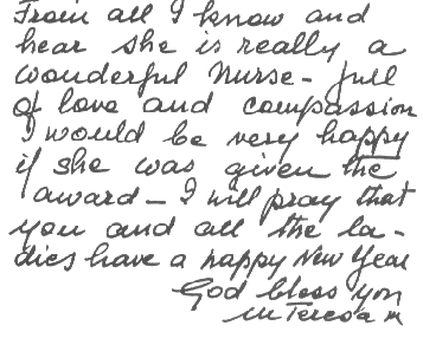 From all I know and
hear she is really a
wonderful Nurse - full
of love and compassion
I would be very happy
if she was given the
award - I will pray that
you and all the la-
dies have a happy New Year
God bless you
M Teresa M